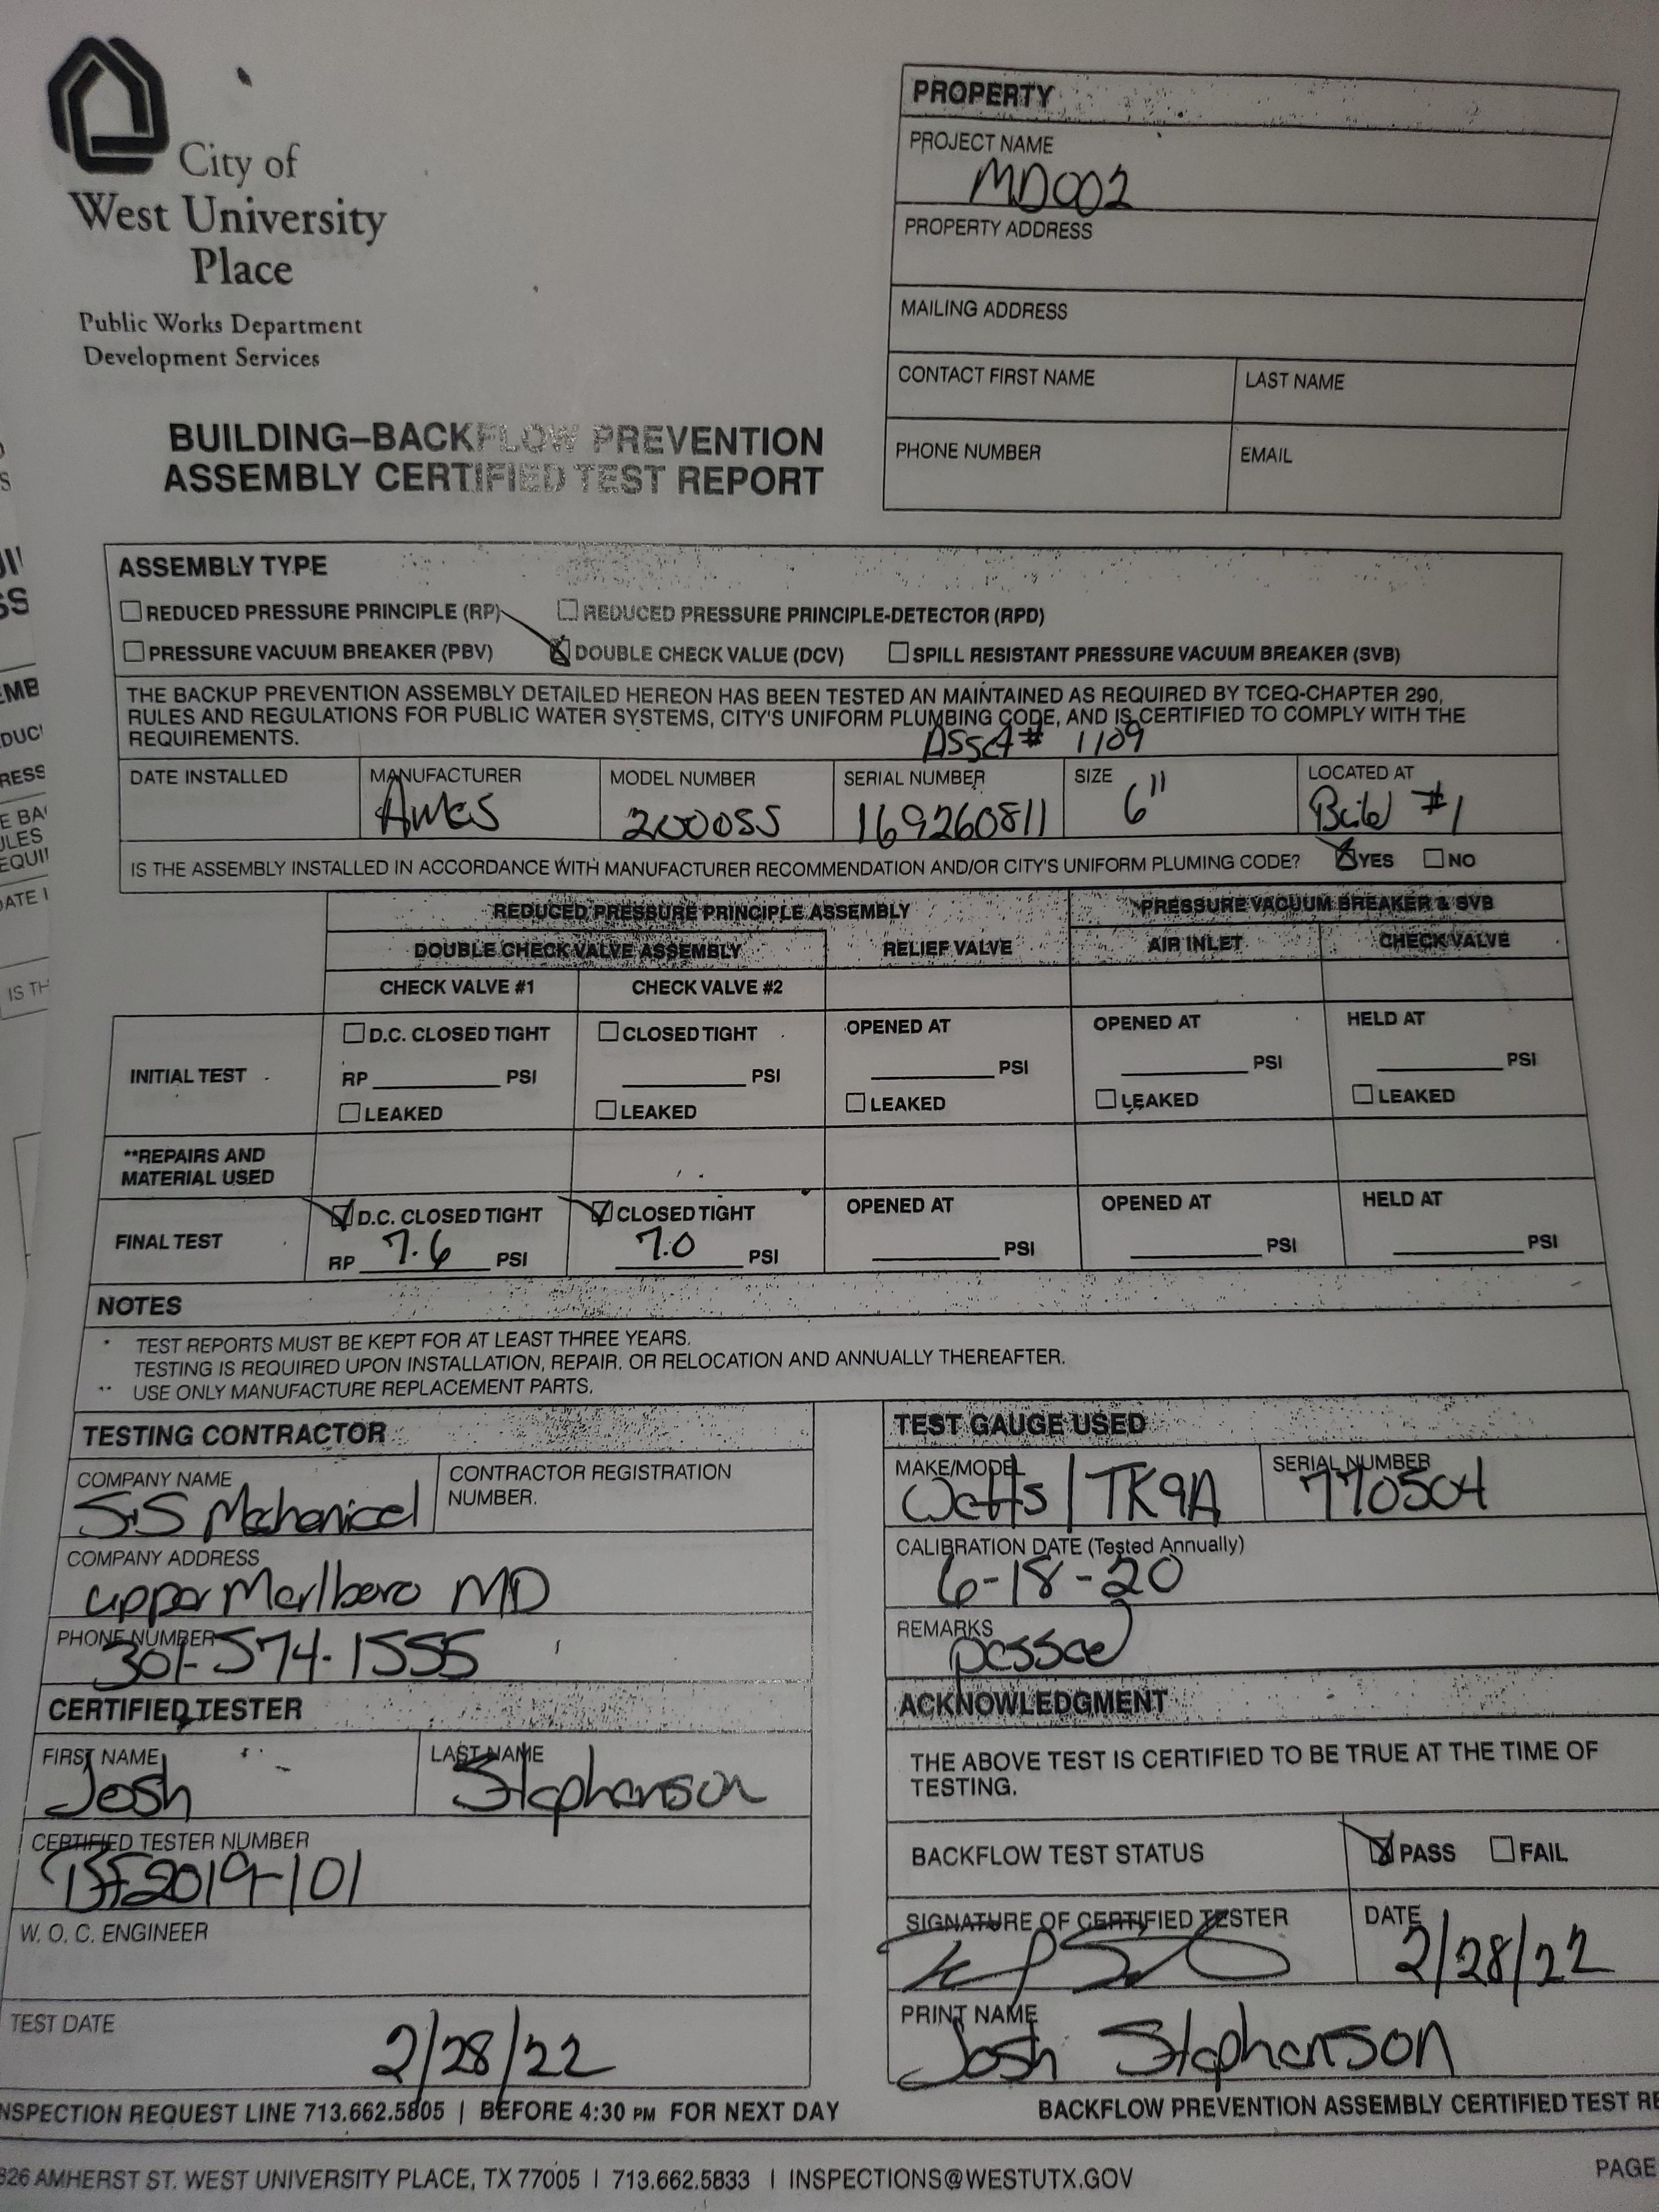 City of
West University
Place
Public Works Department
Development Services
BUILDING–BACKFLOW PREVENTION
ASSEMBLY CERTIFIED TEST REPORT
PROPERTY
PROJECT NAME
MD002
PROPERTY ADDRESS
MAILING ADDRESS
CONTACT FIRST NAME LAST NAME
PHONE NUMBER EMAIL
ASSEMBLY TYPE
REDUCED PRESSURE PRINCIPLE (RP) REDUCED PRESSURE PRINCIPLE-DETECTOR (RPD)
PRESSURE VACUUM BREAKER (PBV) DOUBLE CHECK VALUE (DCV) SPILL RESISTANT PRESSURE VACUUM BREAKER (SVB)
THE BACKUP PREVENTION ASSEMBLY DETAILED HEREON HAS BEEN TESTED AN MAINTAINED AS REQUIRED BY TCEQ-CHAPTER 290,
RULES AND REGULATIONS FOR PUBLIC WATER SYSTEMS, CITY'S UNIFORM PLUMBING CODE, AND IS CERTIFIED TO COMPLY WITH THE
REQUIREMENTS.
Asset# 1109
DATE INSTALLED MANUFACTURER MODEL NUMBER SERIAL NUMBER SIZE LOCATED AT
Ames 2000SS 169260811 6" #1
IS THE ASSEMBLY INSTALLED IN ACCORDANCE WITH MANUFACTURER RECOMMENDATION AND/OR CITY'S UNIFORM PLUMING CODE? YES NO
REDUCED PRESSURE PRINCIPLE ASSEMBLY PRESSURE VACUUM BREAKER & SVB
DOUBLE CHECK VALVE ASSEMBLY RELIEF VALVE AIR INLET CHECK VALVE
CHECK VALVE #1 CHECK VALVE #2
D.C. CLOSED TIGHT CLOSED TIGHT OPENED AT OPENED AT HELD AT
INITIAL TEST RP PSI PSI PSI PSI PSI
LEAKED LEAKED LEAKED LEAKED LEAKED
**REPAIRS AND
MATERIAL USED
D.C. CLOSED TIGHT CLOSED TIGHT OPENED AT OPENED AT HELD AT
FINAL TEST RP 7.6 PSI 7.0 PSI PSI PSI PSI
NOTES
* TEST REPORTS MUST BE KEPT FOR AT LEAST THREE YEARS.
TESTING IS REQUIRED UPON INSTALLATION, REPAIR, OR RELOCATION AND ANNUALLY THEREAFTER.
** USE ONLY MANUFACTURE REPLACEMENT PARTS.
TESTING CONTRACTOR
COMPANY NAME CONTRACTOR REGISTRATION
NUMBER.
S.S Mechanical
COMPANY ADDRESS
upper Marlboro MD
PHONE NUMBER
301-574-1555
CERTIFIED TESTER
FIRST NAME LAST NAME
Josh Stephenson
CERTIFIED TESTER NUMBER
BF2019-101
W. O. C. ENGINEER
TEST DATE
2/28/22
TEST GAUGE USED
MAKE/MODEL SERIAL NUMBER
Watts/TK9A 770504
CALIBRATION DATE (Tested Annually)
6-18-20
REMARKS
passed
ACKNOWLEDGMENT
THE ABOVE TEST IS CERTIFIED TO BE TRUE AT THE TIME OF
TESTING.
BACKFLOW TEST STATUS PASS FAIL
SIGNATURE OF CERTIFIED TESTER DATE
2/28/22
PRINT NAME
Josh Stephenson
NSPECTION REQUEST LINE 713.662.5805 | BEFORE 4:30 PM FOR NEXT DAY
BACKFLOW PREVENTION ASSEMBLY CERTIFIED TEST RE
826 AMHERST ST. WEST UNIVERSITY PLACE, TX 77005 | 713.662.5833 | INSPECTIONS@WESTUTX.GOV
PAGE